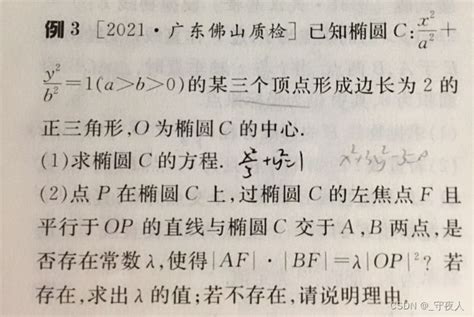 例3 [2021·广东佛山质检]已知椭圆C:x²/a²+
y²/b²=1(a>b>0)的某三个顶点形成边长为2的
正三角形,O为椭圆C的中心.
(1)求椭圆C的方程. x²/3+y²=1
(2)点P在椭圆C上,过椭圆C的左焦点F且
平行于OP的直线与椭圆C交于A,B两点,是
否存在常数λ,使得|AF|·|BF|=λ|OP|²?若
存在,求出λ的值;若不存在,请说明理由.
CSDN @_守夜人